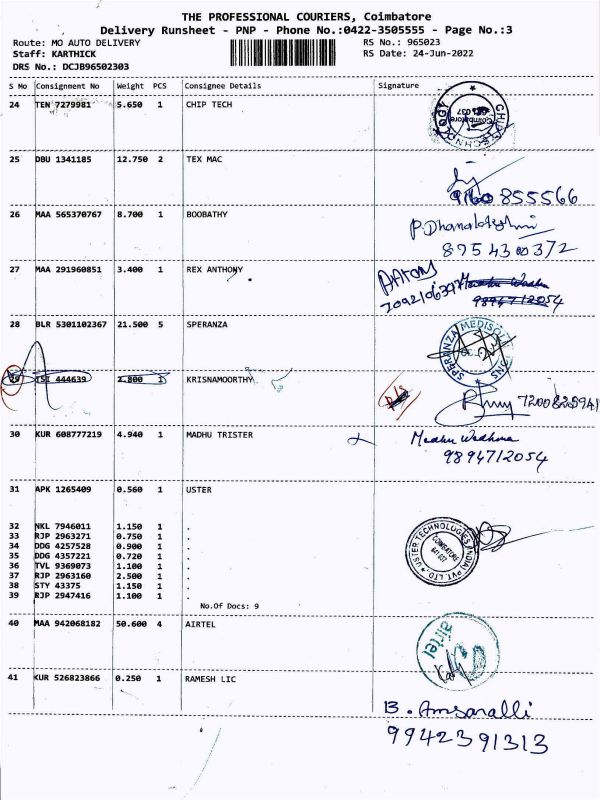 THE PROFESSIONAL COURIERS, Coimbatore
Delivery Runsheet - PNP - Phone No.:0422-3505555 - Page No.:3
Route: MO AUTO DELIVERY RS No.: 965023
Staff: KARTHICK RS Date: 24-Jun-2022
DRS No.: DCJB96502303
S No Consignment No Weight PCS Consignee Details Signature
24 TEN 7279981 5.650 1 CHIP TECH
CHIP TECHNOLOGY Coimbatore
25 DBU 1341185 12.750 2 TEX MAC
9160 855566
26 MAA 565370767 8.700 1 BOOBATHY
P. Dhanalakshmi
8754300372
27 MAA 291960851 3.400 1 REX ANTHONY
Madhu Wadhwa
9894712054
28 BLR 5301102367 21.500 5 SPERANZA
SPERANZA
29 TSI 444639 2.800 1 KRISNAMOORTHY
30 KUR 608777219 4.940 1 MADHU TRISTER
Madhu Wadhwa
9894712054
31 APK 1265409 0.560 1 USTER
32 NKL 7946011 1.150 1 .
33 RJP 2963271 0.750 1 .
34 DDG 4257528 0.900 1 .
35 DDG 4357221 0.720 1 .
36 TVL 9369073 1.100 1 .
37 RJP 2963160 2.500 1 .
38 STY 43375 1.150 1 .
39 RJP 2947416 1.100 1 .
USTER TECHNOLOGIES (INDIA) PVT. LTD.
COIMBATORE
641 037
No.Of Docs: 9
40 MAA 942068182 50.600 4 AIRTEL
airtel
41 KUR 526823866 0.250 1 RAMESH LIC
9942391313